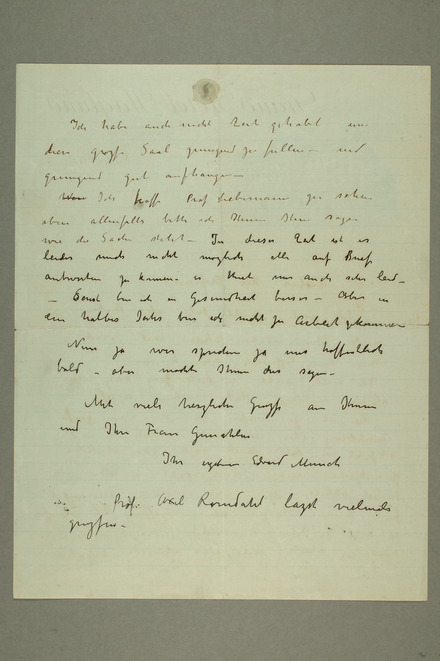 Ich habe auch nicht Zeit gehabt um
den grosse Saal genugend zu fullen – und
genugend gut aufhangen –
Ich hoffe Prof Liebermann zu sehen
aber allenfalls bitte ich Ihnen Ihm sagen
wie die Sache steht – In dieser Zeit ist es
leider nicht moglich alle auf Brief
antworten zu konnen – es thut mir auch sehr leid –
– Sonst bin ich in Gesundheit besser – Aber in
ein halbes Jahr bin ich nicht zu Arbeit gekommen
Nun ja wir sprechen ja uns hoffentlich
bald – aber mochte Ihnen dies sagen –
Mit viele herzliche Grüsse an Ihnen
und Ihre Frau Gemahlin
Ihr Edvard Munch
Prof. Axel Romdahl lasst vielmals
grussen –